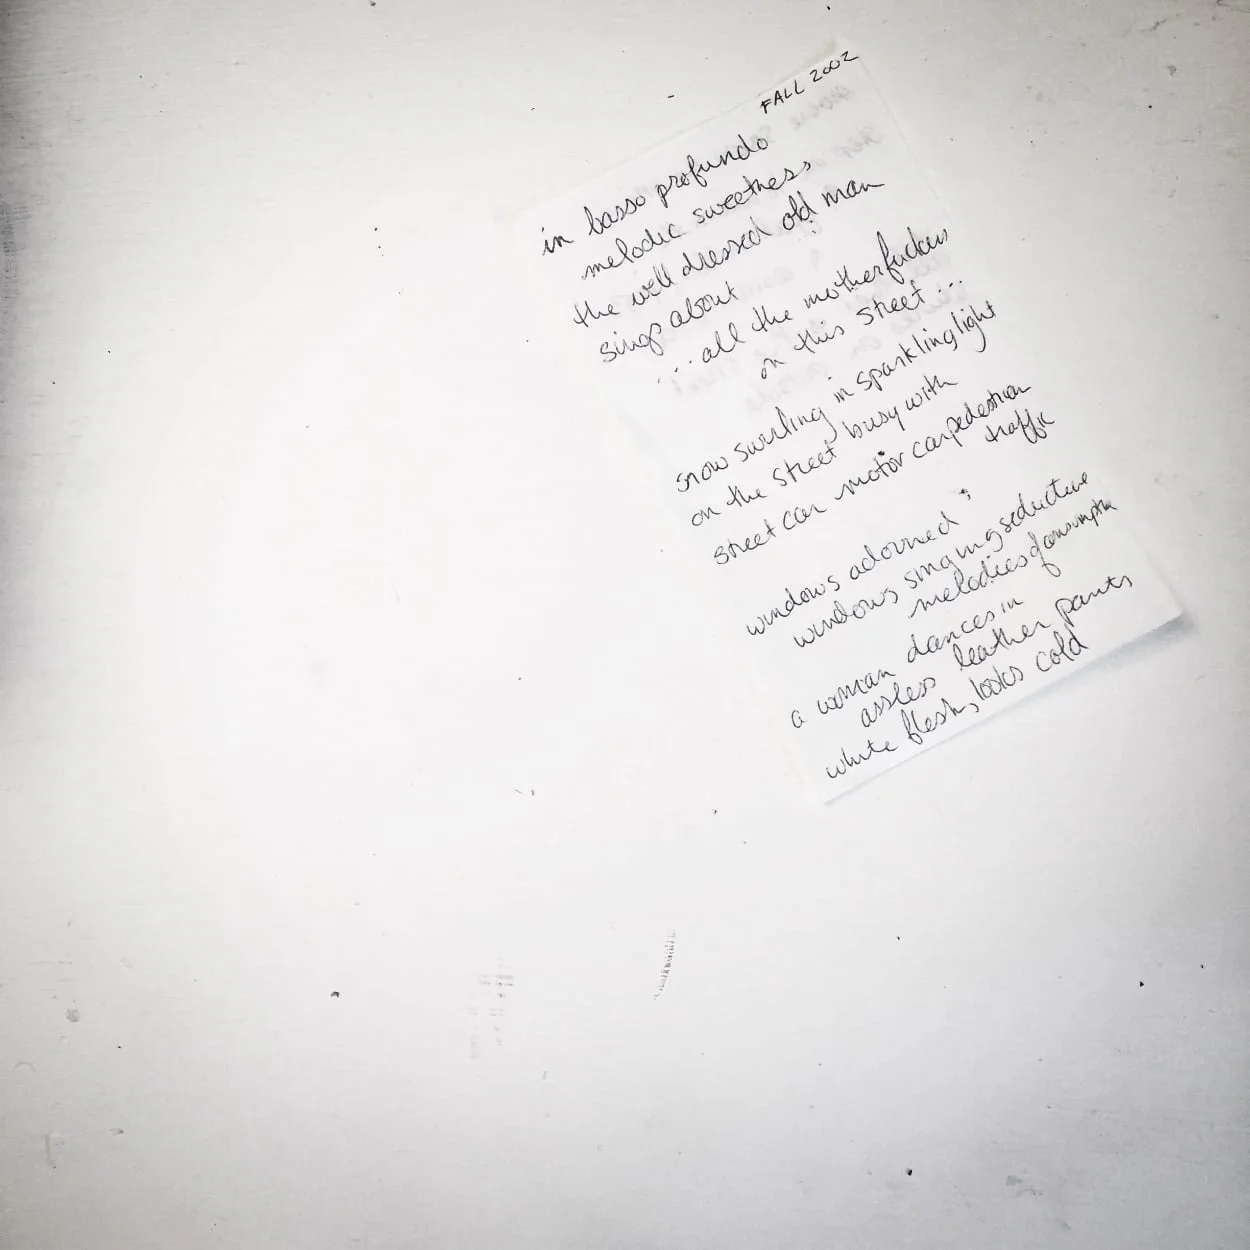 FALL 2002
in basso profundo
melodic sweetness
the well dressed old man
sings about
...all the motherfuckers
on this street...
snow swirling in sparkling light
on the street busy with
street car motor car pedestrian
traffic
windows adorned;
windows singing seductive
melodies of consumption
a woman dances in
assless leather pants
white flesh, looks cold